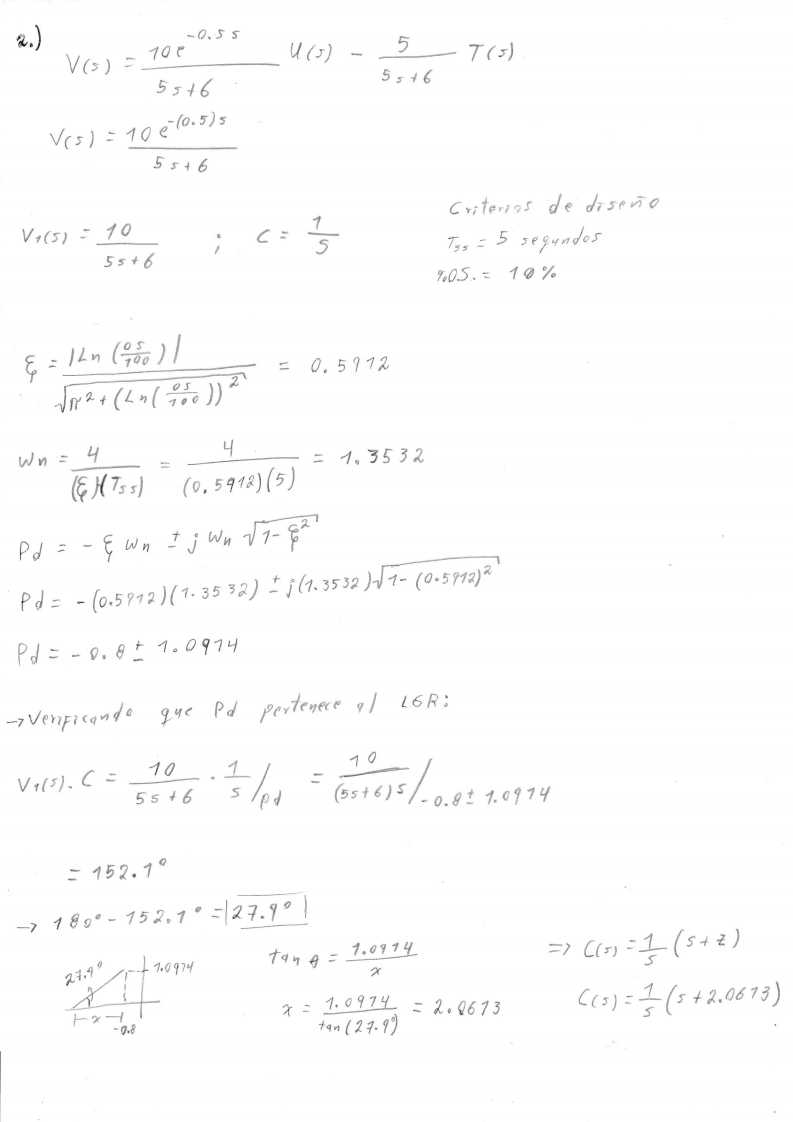 2.) V(s) = 10e^-0.5s / 5s+6 U(s) - 5 / 5s+6 T(s)
V(s) = 10e^-(0.5)s / 5s+6
V1(s) = 10 / 5s+6 ; C = 1/s
Criterios de diseño
Tss = 5 segundos
%OS. = 10%
ξ = |Ln(os/100)| / √π²+(Ln(os/100))² = 0.5912
Wn = 4 / (ξ)(Tss) = 4 / (0.5912)(5) = 1.3532
Pd = -ξ Wn ± j Wn √1-ξ²
Pd = -(0.5912)(1.3532) ± j(1.3532)√1-(0.5912)²
Pd = -0.8 ± 1.0914
→ Verificando que Pd pertenece al LGR:
V1(s). C = 10 / 5s+6 . 1/s /pd = 10 / (5s+6)s /-0.8 ± 1.0914
= 152.1°
→ 180° - 152.1° = 27.9°
27.9° 1.0914
x
-0.8
tan θ = 1.0914 / x
x = 1.0914 / tan(27.9°) = 2.0613
⇒ C(s) = 1/s (s+z)
C(s) = 1/s (s+2.0613)